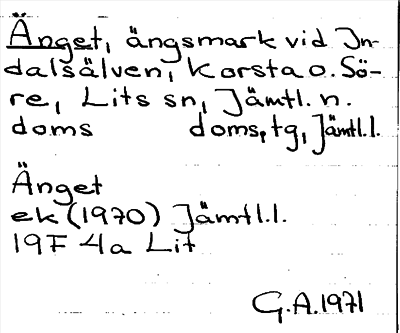 Änget, ängsmark vid In-
dalsälven, Korsta o. Sö-
re, Lits sn, Jämtl. n.
doms domsg tg, Jämtl.l.
Änget
ek (1970) Jämtl.l.
19F 4a Lit
G.A. 1971